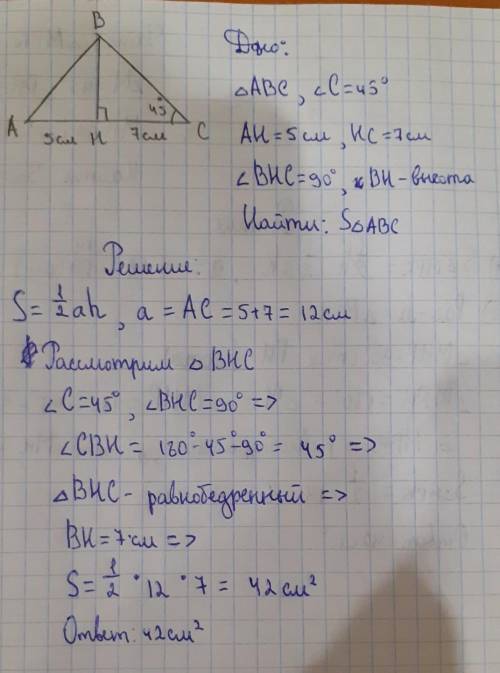 B
45°
A
5см H 7см C
Дано:
△ABC, ∠C=45°
AH=5см, HC=7см
∠BHC=90°, BH-высота
Найти: S△ABC
Решение:
S=1/2ah, a=AC=5+7=12см
Рассмотрим △BHC
∠C=45°, ∠BHC=90° =>
∠CBH= 180°-45°-90°= 45° =>
△BHC- равнобедренный =>
BH=7см =>
S=1/2·12·7= 42см²
Ответ: 42см²